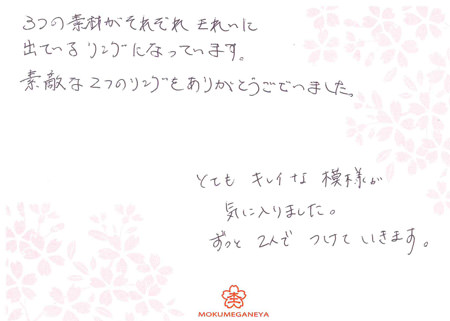 3つの素材がそれぞれ きれいに
出ているリングになっています。
素敵な2つのリングをありがとうございました。
とても キレイな 模様が
気に入りました。
ずっと 2人で つけて いきます。
杢
MOKUMEGANEYA